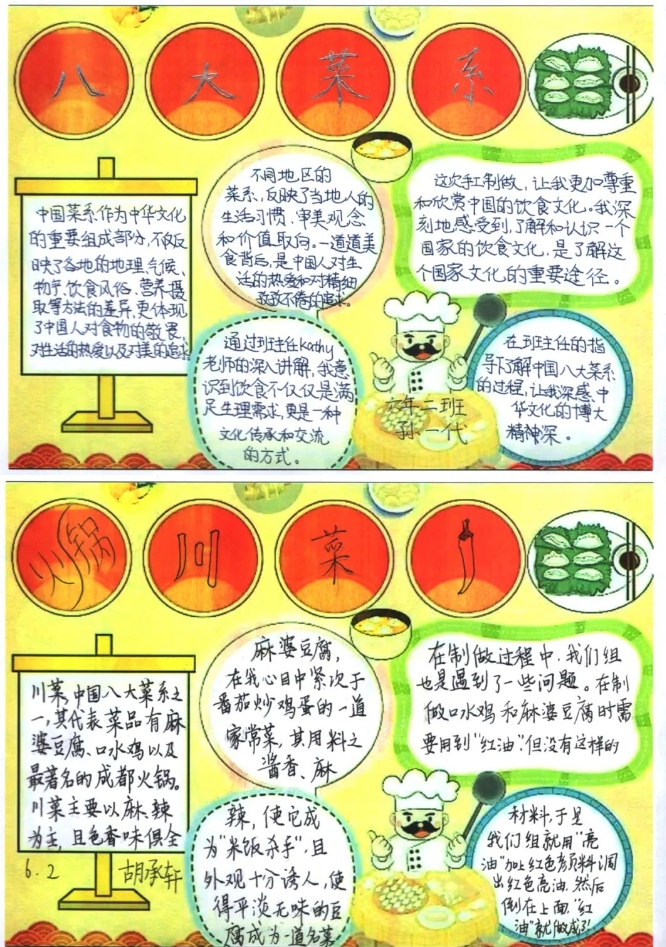 八大菜系
中国菜系作为中华文化
的重要组成部分,不仅反
映了各地的地理、气候、
物产、饮食风俗、营养摄
取等方法的差异,更体现
了中国人对食物的敬畏、
对生活的热爱以及对美的追求
不同地区的
菜系,反映了当地人的
生活习惯、审美观念
和价值取向。一道道美
食背后,是中国人对生
活的热爱和对精细
孜孜不倦的追求。
这次手工制做,让我更加尊重
和欣赏中国的饮食文化。我深
刻地感受到,了解和认识一个
国家的饮食文化,是了解这
个国家文化的重要途径。
通过班主任kathy
老师的深入讲解,我意
识到饮食不仅仅是满
足生理需求,更是一种
文化传承和交流
的方式。
六年二班
孙一代
在班主任的指
导下了解中国八大菜系
的过程,让我深感中
华文化的博大
精神深。
火锅川菜
川菜,中国八大菜系之
一,其代表菜品有麻
婆豆腐、口水鸡以及
最著名的成都火锅。
川菜主要以麻、辣
为主,且色香味俱全
6.2 胡承轩
麻婆豆腐,
在我心目中紧次于
番茄炒鸡蛋的一道
家常菜,其用料之
酱香、麻
辣,使它成
为"米饭杀手",且
外观十分诱人,使
得平淡无味的豆
腐成为一道名菜
在制做过程中,我们组
也是遇到了一些问题。在制
做口水鸡和麻婆豆腐时需
要用到"红油",但没有这样的
材料,于是
我们组就用"亮
油"加上红色颜料调
出红色亮油,然后
倒在上面,"红
油"就做成了!